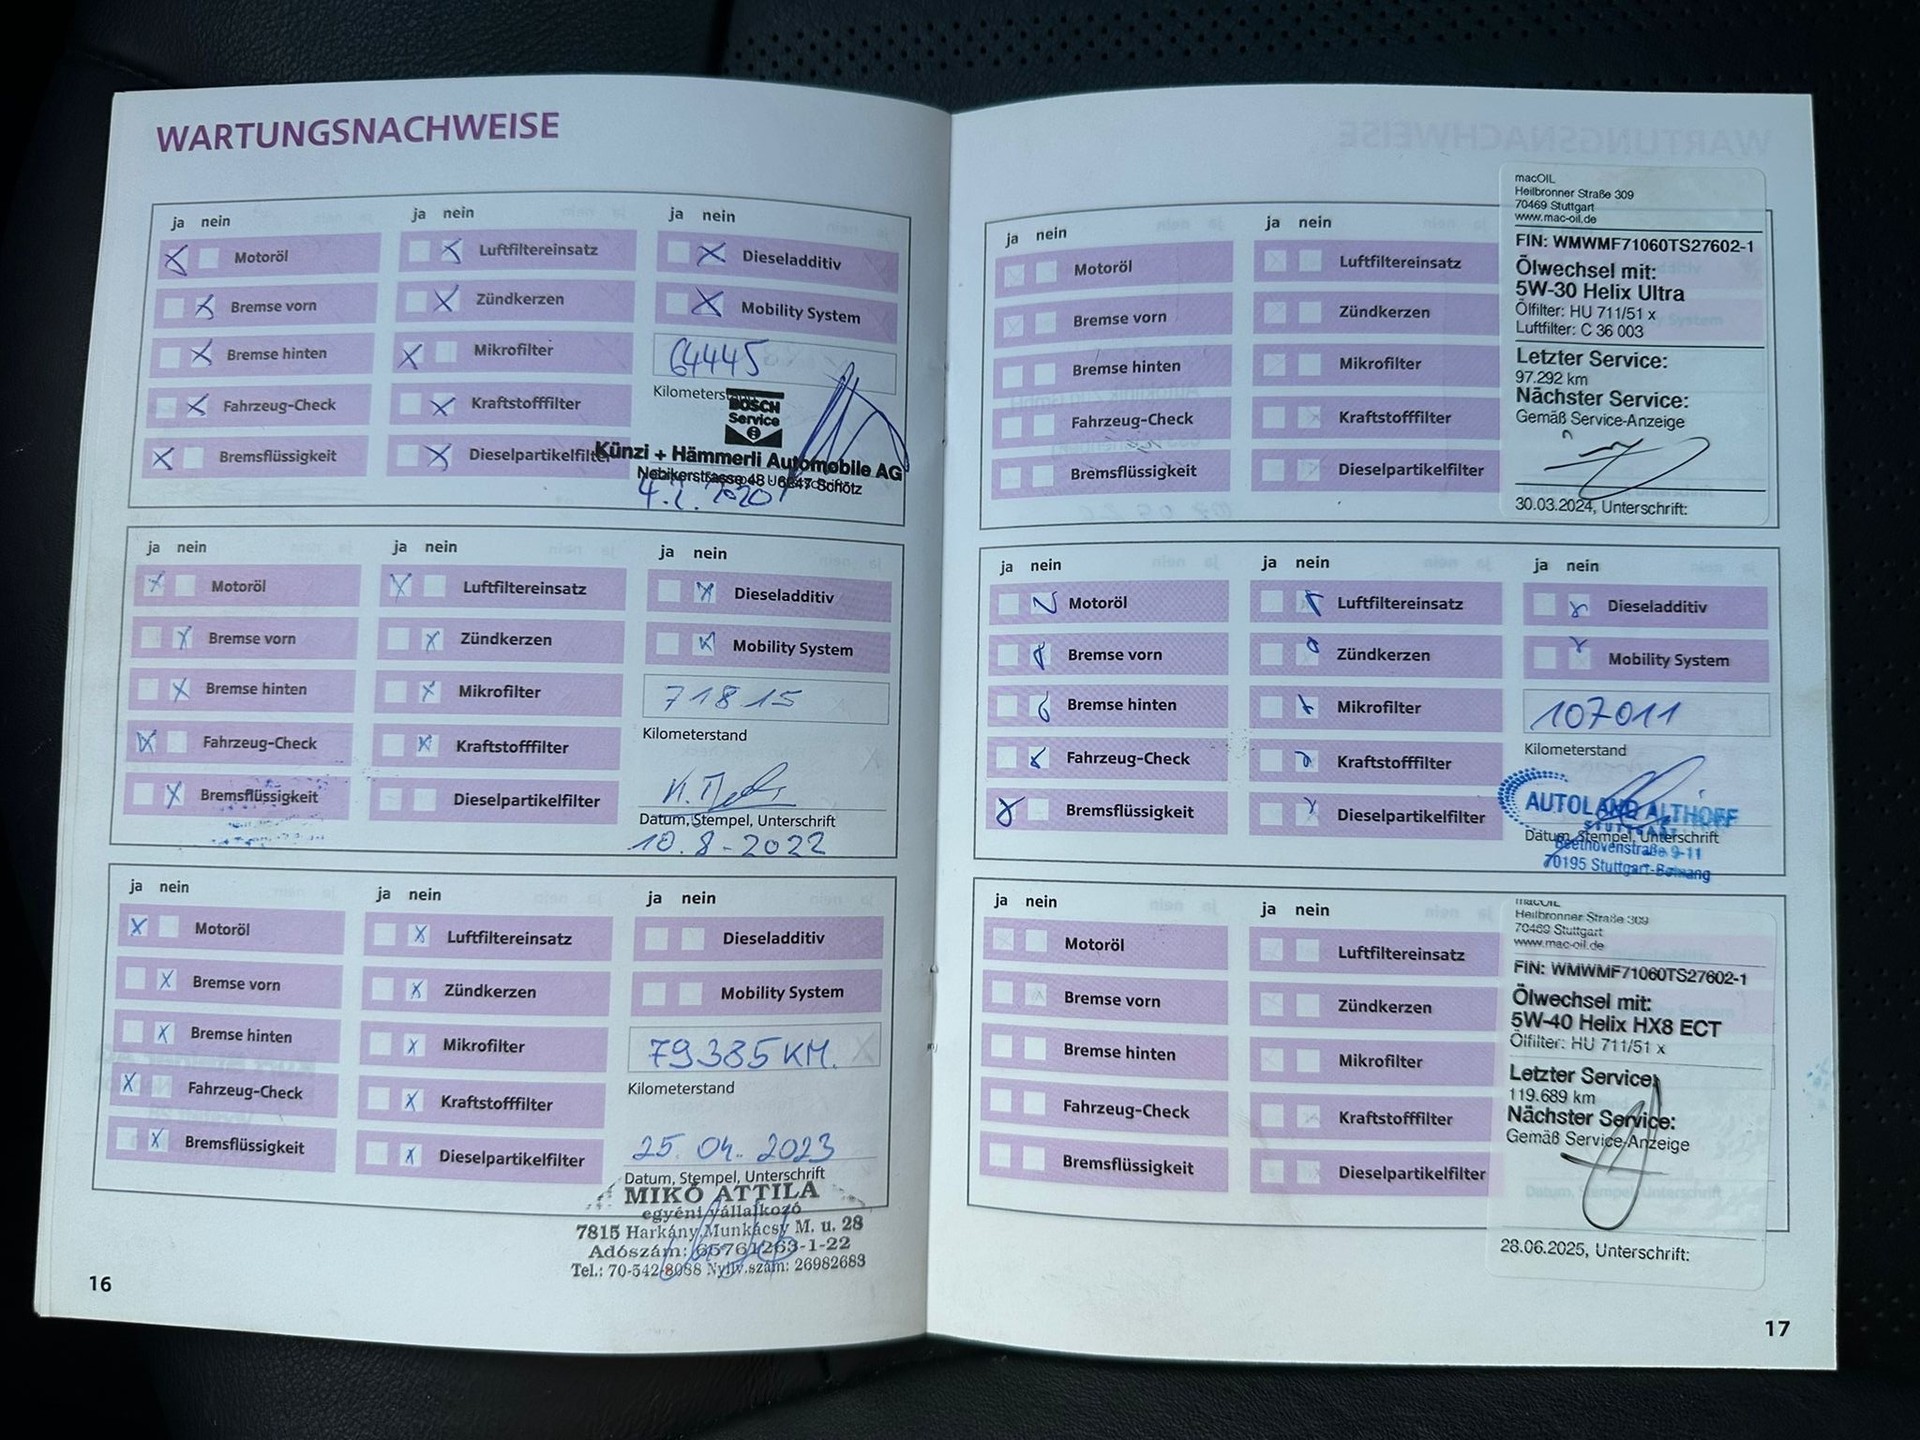 WARTUNGSNACHWEISE
ja nein
Motoröl
Bremse vorn
Bremse hinten
Fahrzeug-Check
Bremsflüssigkeit
ja nein
Luftfiltereinsatz
Zündkerzen
Mikrofilter
Kraftstofffilter
Dieselpartikelfilter
ja nein
Dieseladditiv
Mobility System
64445
Kilometerstand
BOSCH
Service
Künzi + Hämmerli Automobile AG
Nebikerstrasse 48 6247 Schötz
ja nein
Motoröl
Bremse vorn
Bremse hinten
Fahrzeug-Check
Bremsflüssigkeit
ja nein
Luftfiltereinsatz
Zündkerzen
Mikrofilter
Kraftstofffilter
Dieselpartikelfilter
ja nein
Dieseladditiv
Mobility System
71815
Kilometerstand
Datum, Stempel, Unterschrift
10.8-2022
ja nein
Motoröl
Bremse vorn
Bremse hinten
Fahrzeug-Check
Bremsflüssigkeit
ja nein
Luftfiltereinsatz
Zündkerzen
Mikrofilter
Kraftstofffilter
Dieselpartikelfilter
ja nein
Dieseladditiv
Mobility System
79385 KM.
Kilometerstand
25. 04. 2023
Datum, Stempel, Unterschrift
MIKÓ ATTILA
egyéni vállalkozó
7815 Harkány Munkácsy M. u. 28
Adószám: 65761263-1-22
Tel.: 70-542-8088 Nyilv.szám: 26982683
16
ja nein
Motoröl
Bremse vorn
Bremse hinten
Fahrzeug-Check
Bremsflüssigkeit
ja nein
Luftfiltereinsatz
Zündkerzen
Mikrofilter
Kraftstofffilter
Dieselpartikelfilter
macOIL
Heilbronner Straße 309
70469 Stuttgart
www.mac-oil.de
FIN: WMWMF71060TS27602-1
Ölwechsel mit:
5W-30 Helix Ultra
Ölfilter: HU 711/51 x
Luftfilter: C 36 003
Letzter Service:
97.292 km
Nächster Service:
Gemäß Service-Anzeige
30.03.2024, Unterschrift:
ja nein
Motoröl
Bremse vorn
Bremse hinten
Fahrzeug-Check
Bremsflüssigkeit
ja nein
Luftfiltereinsatz
Zündkerzen
Mikrofilter
Kraftstofffilter
Dieselpartikelfilter
ja nein
Dieseladditiv
Mobility System
107011
Kilometerstand
AUTOLAND ALTHOFF
STUTTGART
Datum, Stempel, Unterschrift
Beethovenstraße 9-11
70195 Stuttgart-Botnang
ja nein
Motoröl
Bremse vorn
Bremse hinten
Fahrzeug-Check
Bremsflüssigkeit
ja nein
Luftfiltereinsatz
Zündkerzen
Mikrofilter
Kraftstofffilter
Dieselpartikelfilter
macOIL
Heilbronner Straße 309
70469 Stuttgart
www.mac-oil.de
FIN: WMWMF71060TS27602-1
Ölwechsel mit:
5W-40 Helix HX8 ECT
Ölfilter: HU 711/51 x
Letzter Service:
119.689 km
Nächster Service:
Gemäß Service-Anzeige
28.06.2025, Unterschrift:
17